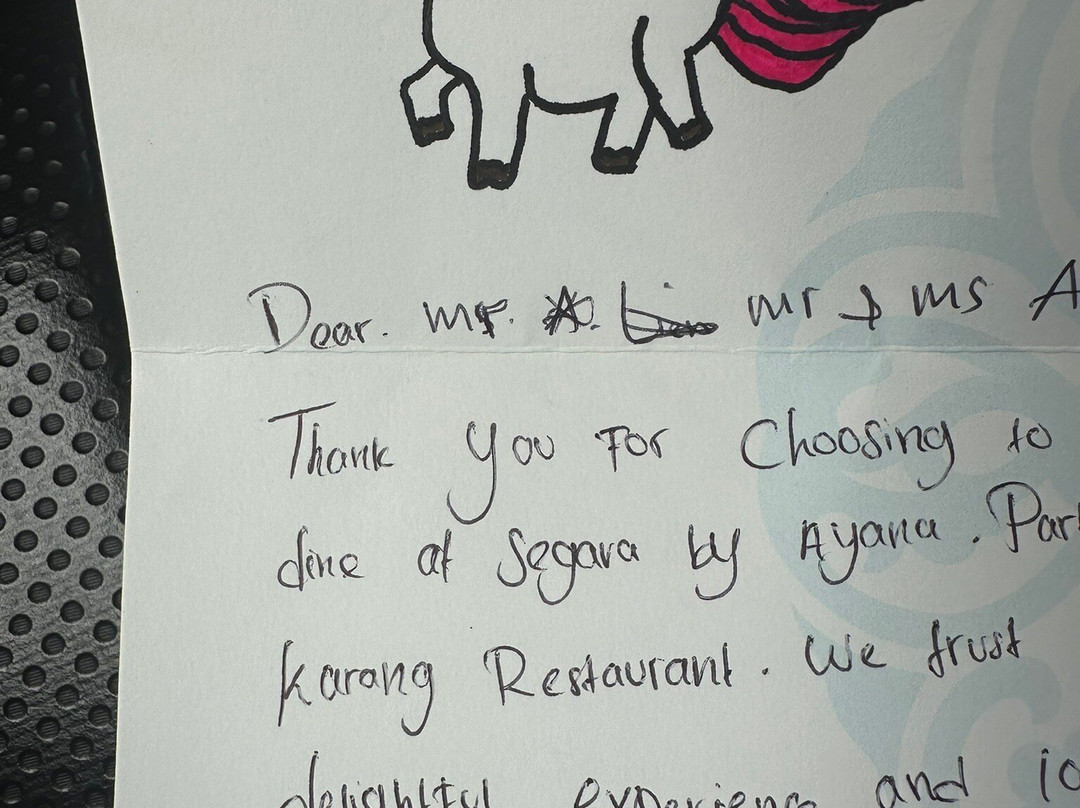 Dear. Mr. A. mr & ms A
Thank you For Choosing to
dine at Segara by Ayana. Par
Karang Restaurant. We trust
delightful experience and